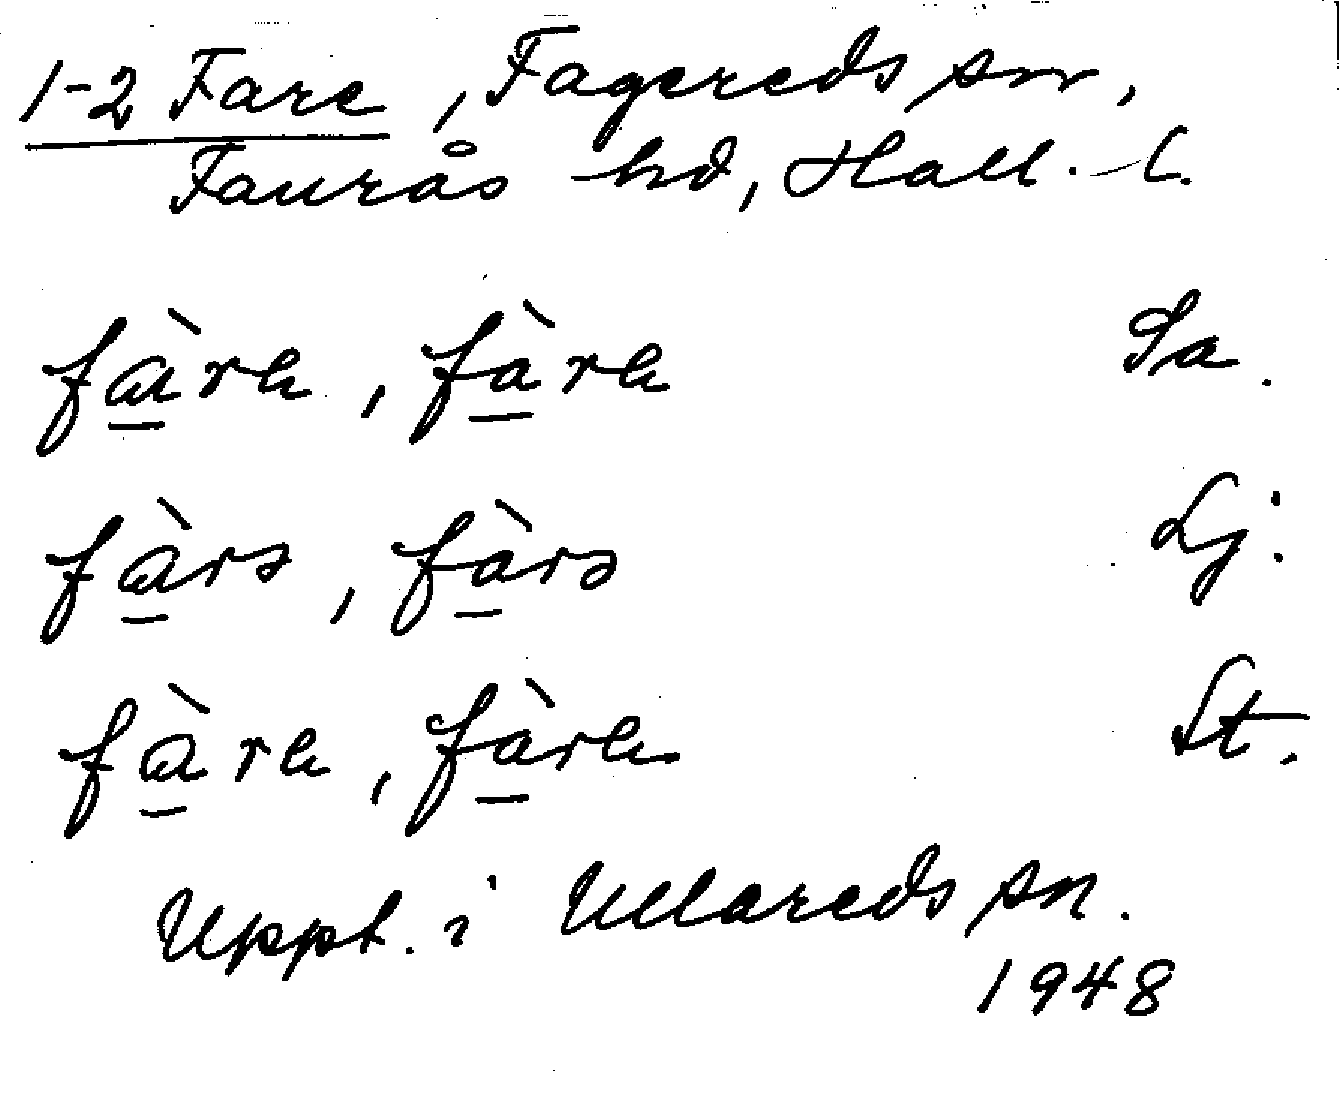 1-2 Fare, Fagereds sn,
Faurås hd, Hall. l.
fà̱rɐ, fà̱rɐ Sa.
fà̱rə, fà̱rə Lj.
fà̱rɐ, fà̱rɐ St.
Uppt. i Ullareds sn.
1948